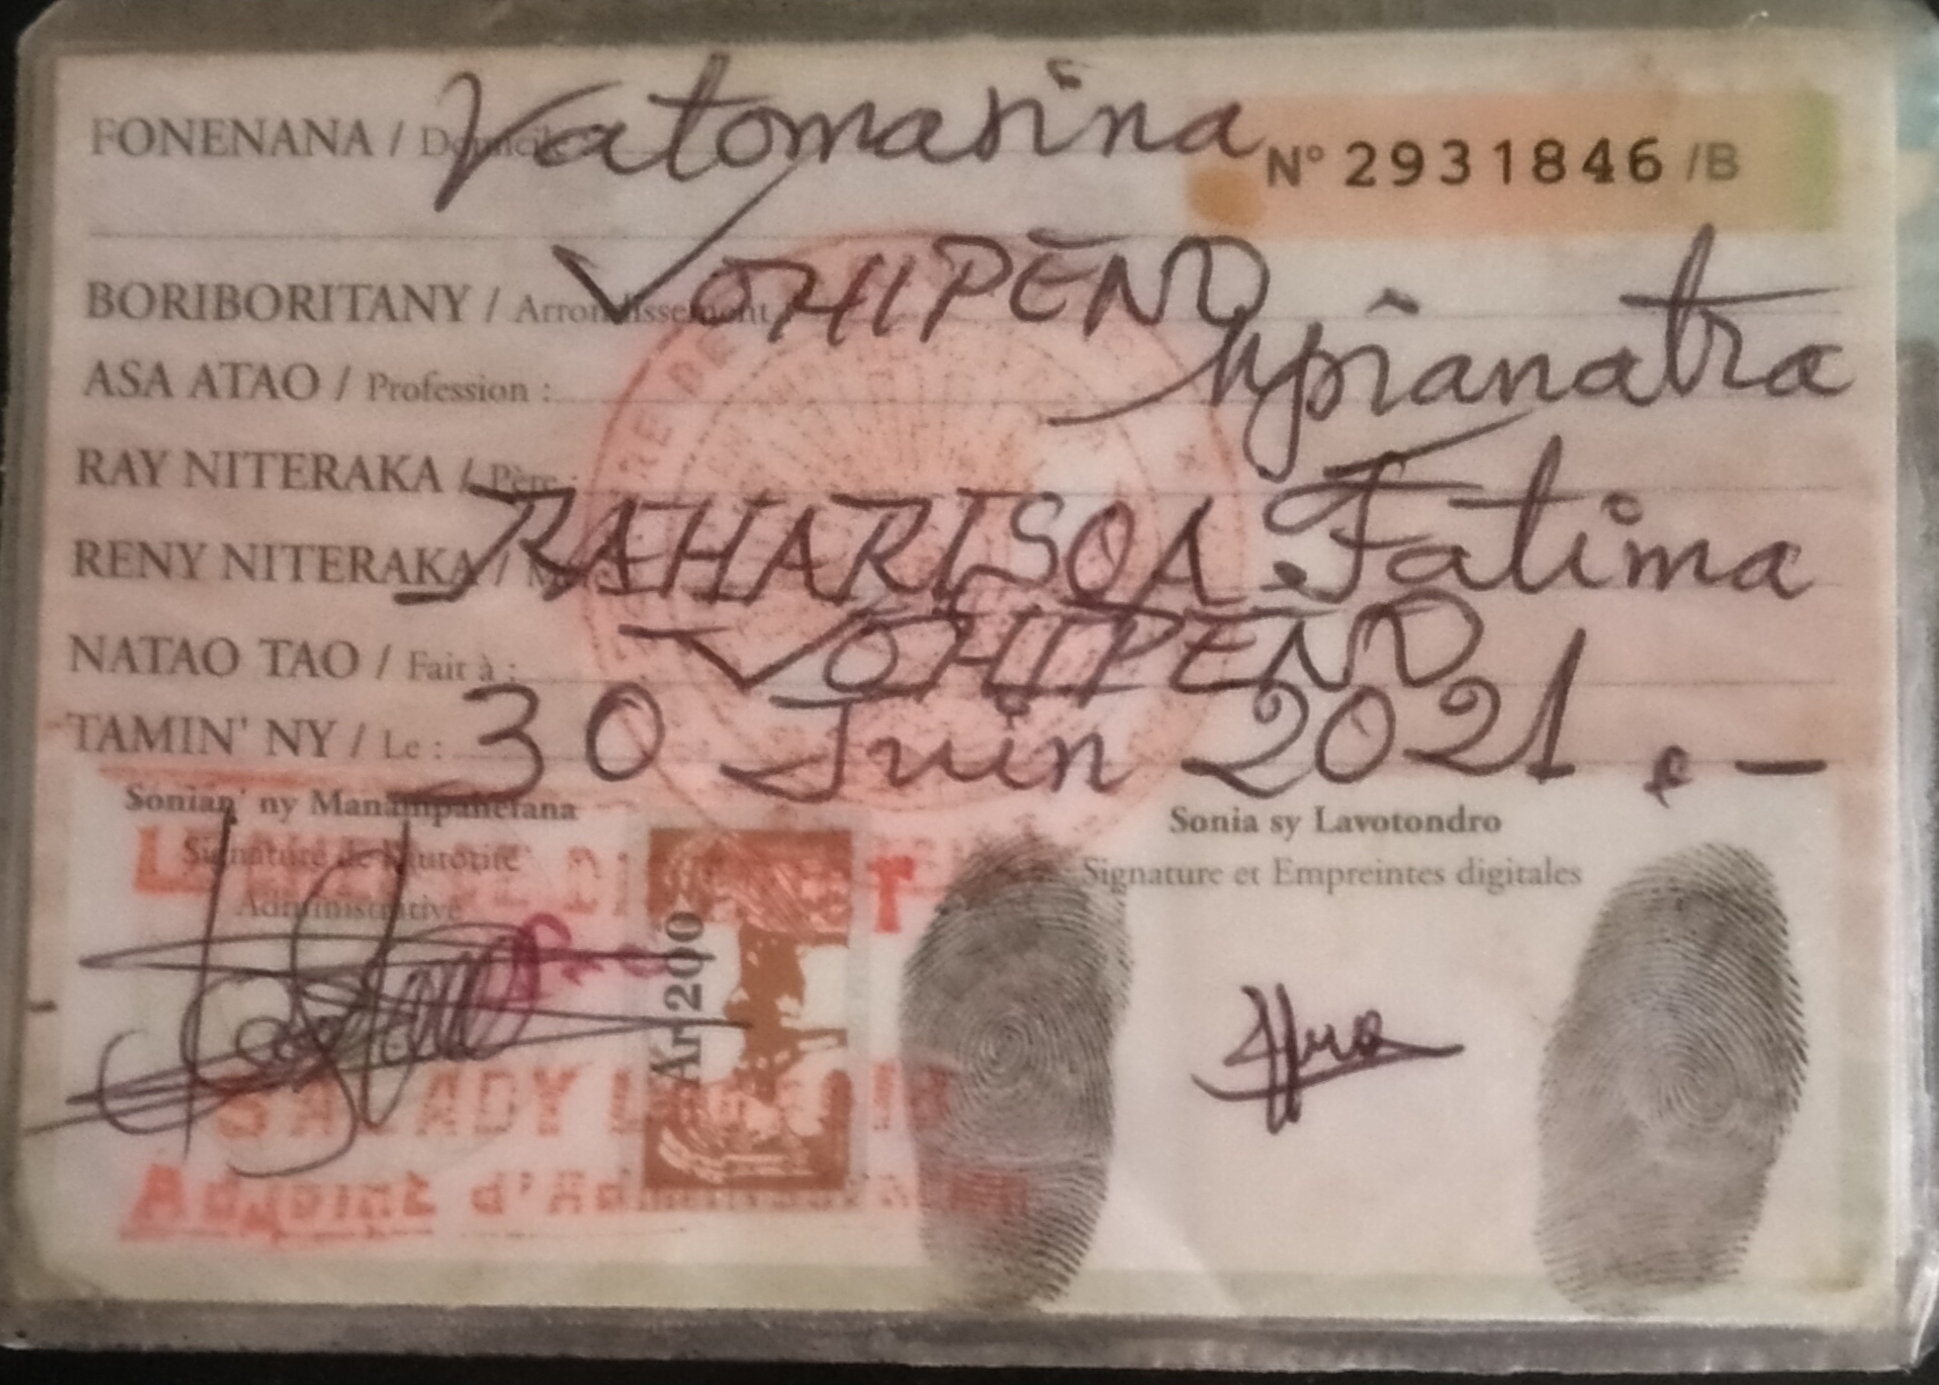 FONENANA / Domicile Vatomasina
N° 2931846 /B
BORIBORITANY / Arrondissement VOHIPENO
ASA ATAO / Profession : Mpianatra
RAY NITERAKA / Père :
RENY NITERAKA / RAHARISOA Fatima
NATAO TAO / Fait à : VOHIPENO
TAMIN' NY / Le : 30 Juin 2021 .-
Sonian' ny Manampahefana
Signature de l'autorité
Administrative
Sonia sy Lavotondro
Signature et Empreintes digitales
Ar 200
Adjoint d'Administration